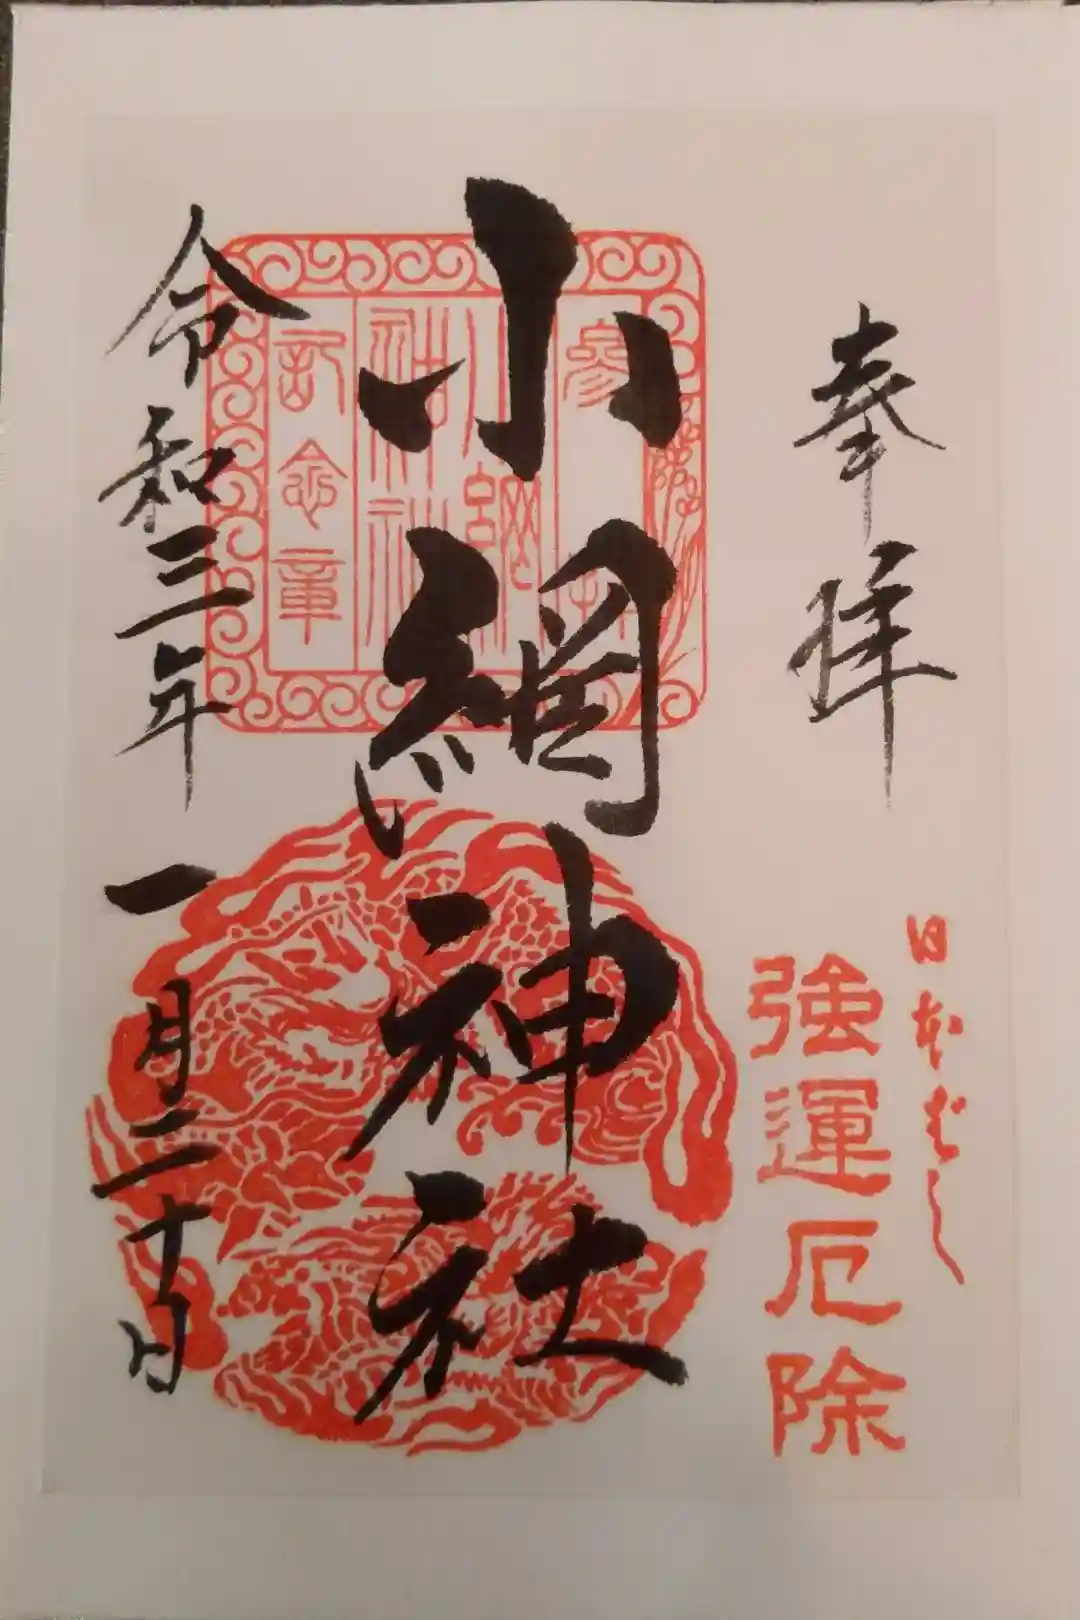 奉拝
日本ばし
強運厄除
小網神社
参拝
小網
神社
記念章
令和三年一月二十日